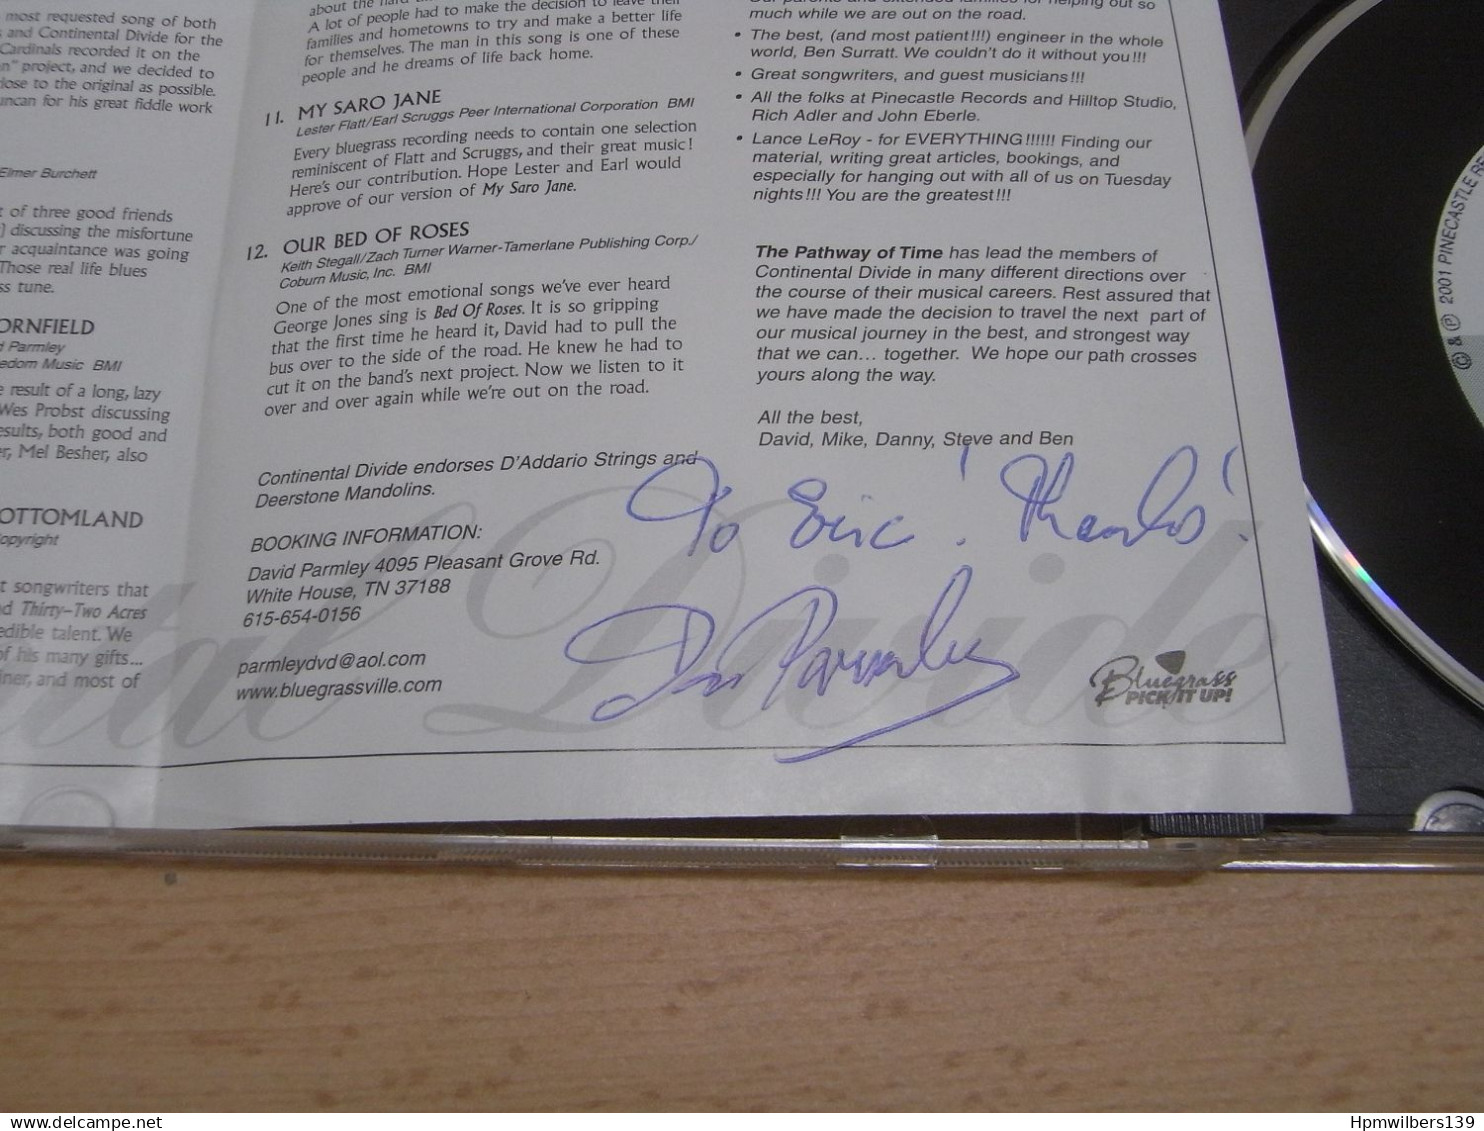 most requested song of both
and Continental Divide for the
Cardinals recorded it on the
n" project, and we decided to
lose to the original as possible.
uncan for his great fiddle work
Elmer Burchett
t of three good friends
) discussing the misfortune
r acquaintance was going
Those real life blues
ss tune.
ORNFIELD
d Parmley
edom Music BMI
e result of a long, lazy
Wes Probst discussing
esults, both good and
er, Mel Besher, also
OTTOMLAND
opyright
t songwriters that
nd Thirty-Two Acres
edible talent. We
of his many gifts...
iner, and most of
about the hard
A lot of people had to make the decision to leave their
families and hometowns to try and make a better life
for themselves. The man in this song is one of these
people and he dreams of life back home.
11. MY SARO JANE
Lester Flatt/Earl Scruggs Peer International Corporation BMI
Every bluegrass recording needs to contain one selection
reminiscent of Flatt and Scruggs, and their great music!
Here's our contribution. Hope Lester and Earl would
approve of our version of My Saro Jane.
12. OUR BED OF ROSES
Keith Stegall/Zach Turner Warner-Tamerlane Publishing Corp./
Coburn Music, Inc. BMI
One of the most emotional songs we've ever heard
George Jones sing is Bed Of Roses. It is so gripping
that the first time he heard it, David had to pull the
bus over to the side of the road. He knew he had to
cut it on the band's next project. Now we listen to it
over and over again while we're out on the road.
Continental Divide endorses D'Addario Strings and
Deerstone Mandolins.
BOOKING INFORMATION:
David Parmley 4095 Pleasant Grove Rd.
White House, TN 37188
615-654-0156
parmleydvd@aol.com
www.bluegrassville.com
Our parents and extended families for helping out so
much while we are out on the road.
• The best, (and most patient!!!) engineer in the whole
world, Ben Surratt. We couldn't do it without you!!!
• Great songwriters, and guest musicians!!!
• All the folks at Pinecastle Records and Hilltop Studio,
Rich Adler and John Eberle.
• Lance LeRoy - for EVERYTHING!!!!!! Finding our
material, writing great articles, bookings, and
especially for hanging out with all of us on Tuesday
nights!!! You are the greatest!!!
The Pathway of Time has lead the members of
Continental Divide in many different directions over
the course of their musical careers. Rest assured that
we have made the decision to travel the next part of
our musical journey in the best, and strongest way
that we can... together. We hope our path crosses
yours along the way.
All the best,
David, Mike, Danny, Steve and Ben
To Eric! Thanks!
D Parmley
tal Divide
Bluegrass
PICK IT UP!
© & ℗ 2001 PINECASTLE RE
delcampe.net
Hpmwilbers139